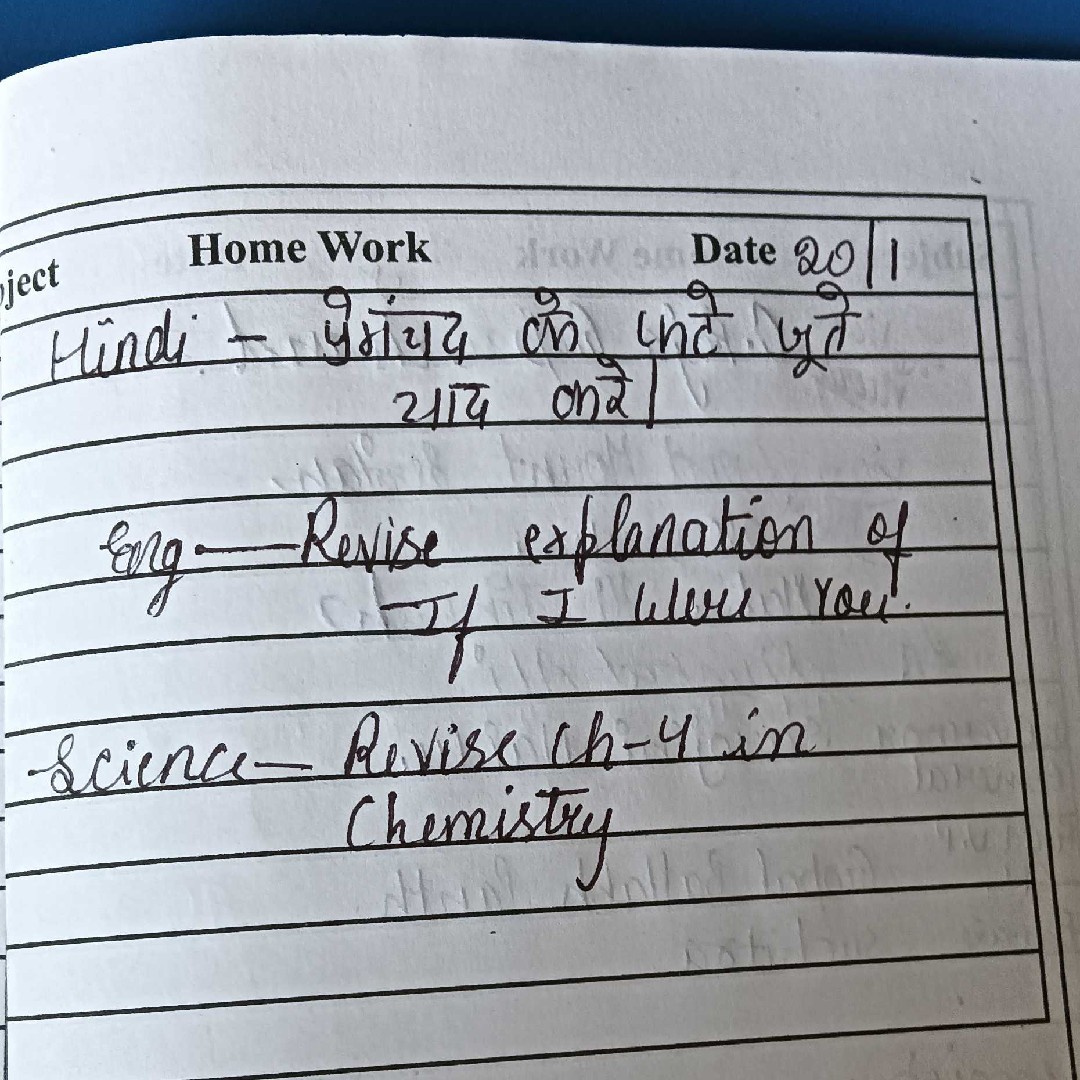 ject Home Work Date 20/1
Hindi - प्रेमचंद के फटे जूते
याद करे|
Eng — Revise explanation of
If I Were You.
Science — Revise Ch-4 in
Chemistry